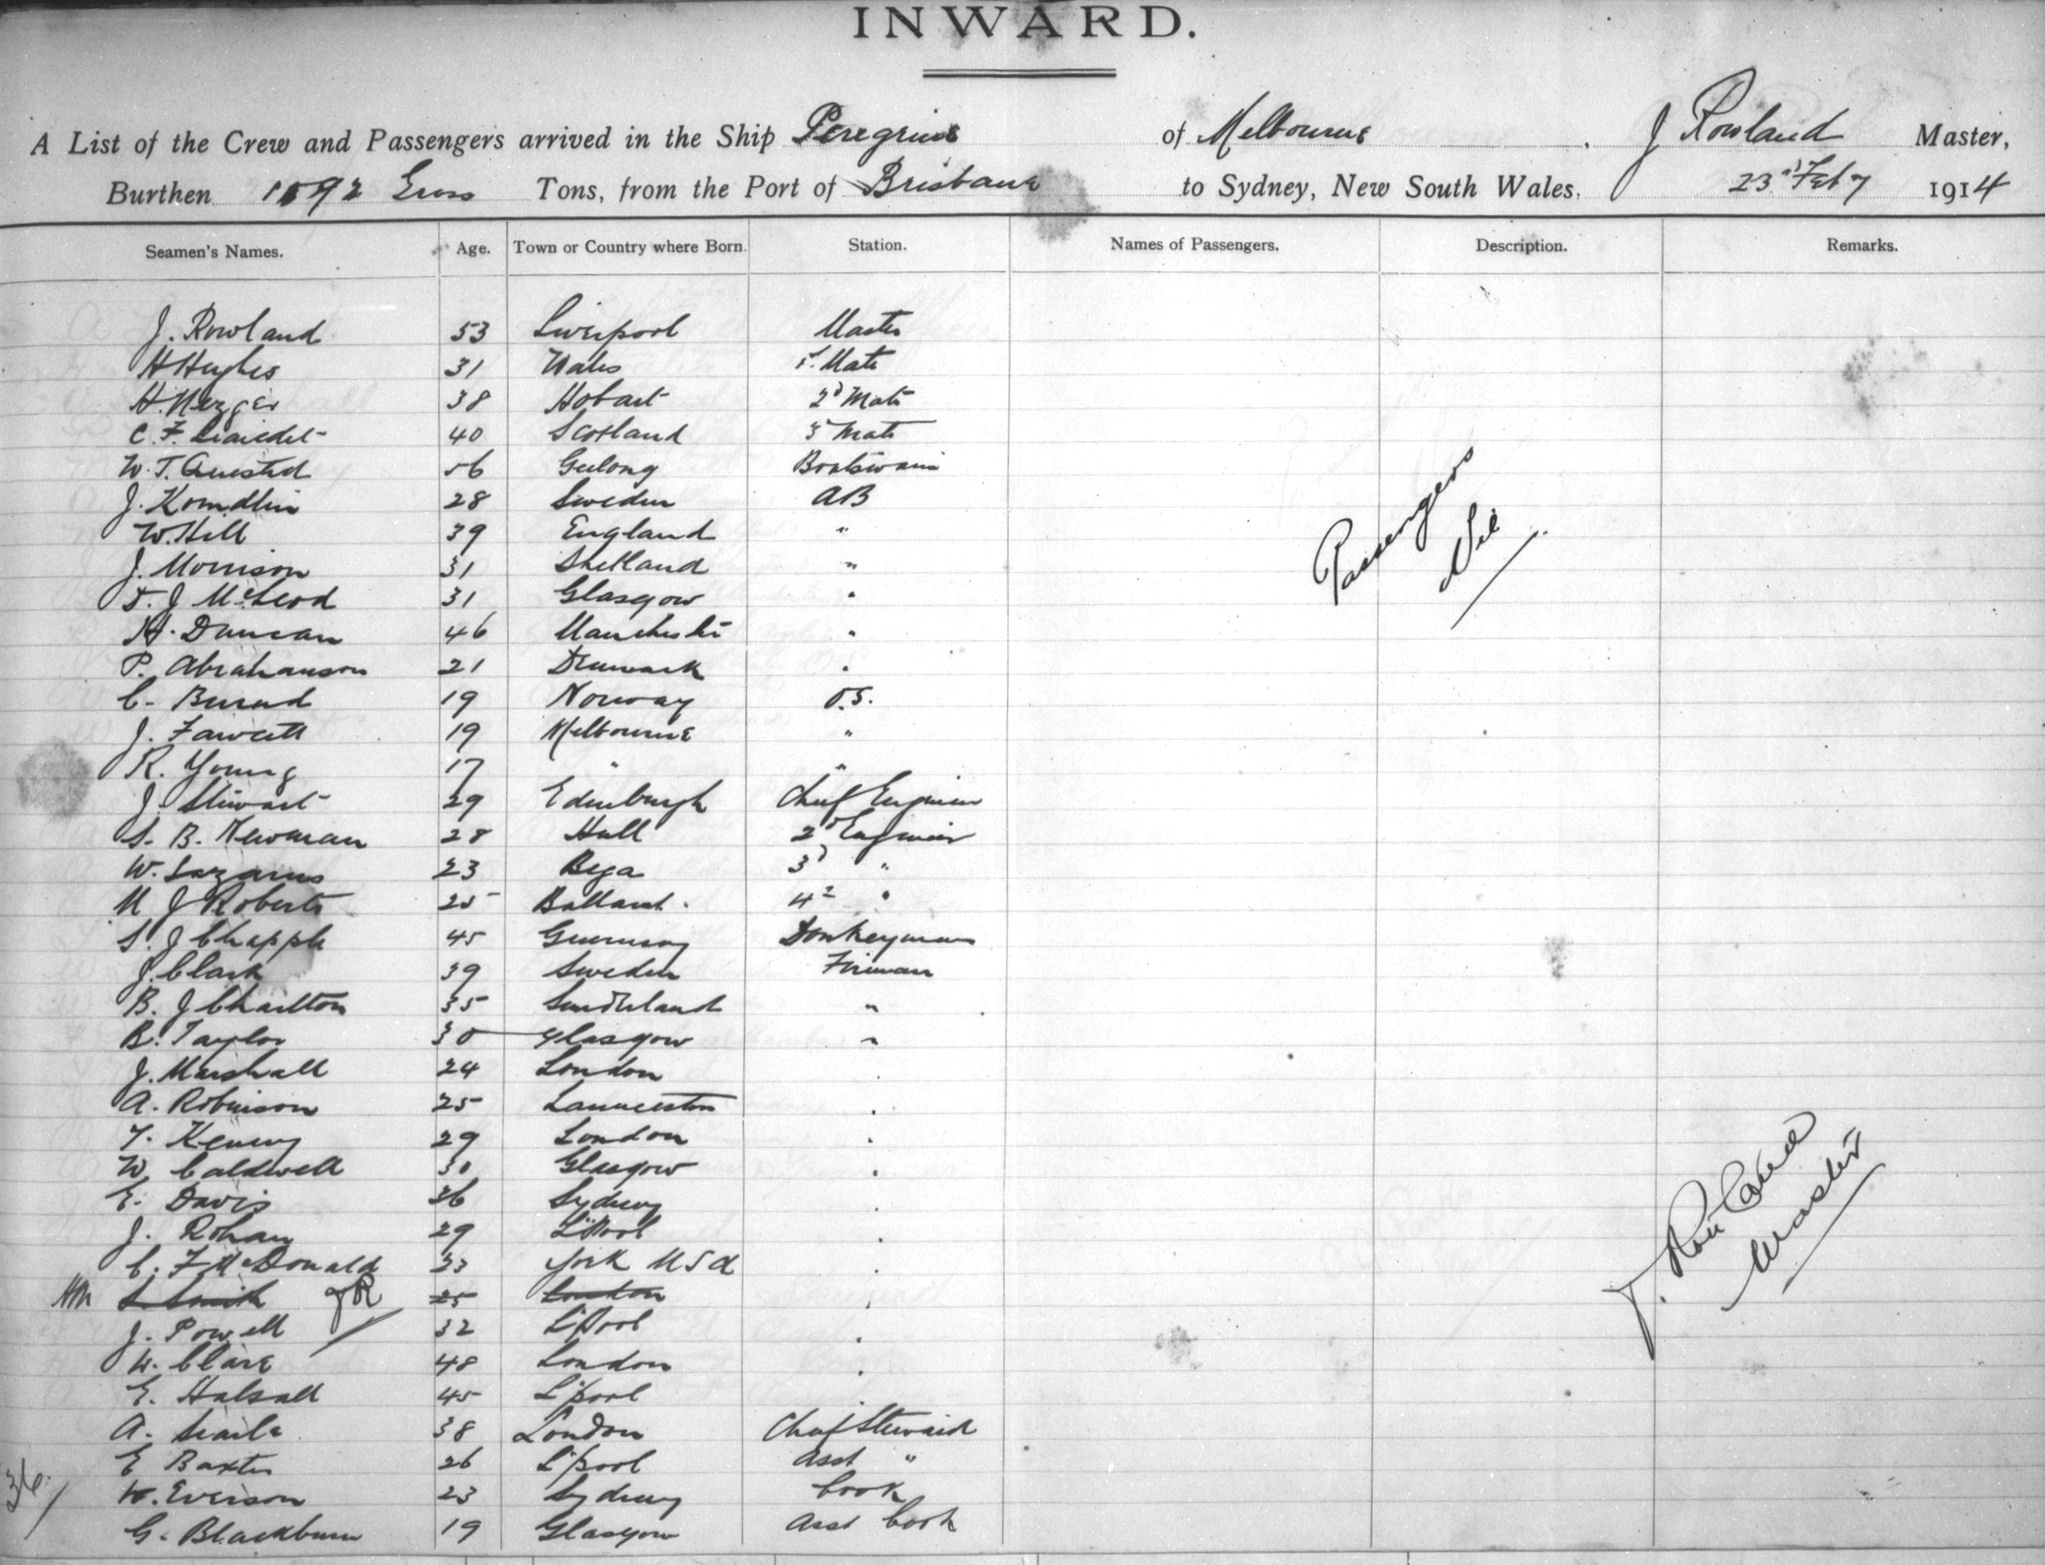 INWARD.
A List of the Crew and Passengers arrived in the Ship Peregrine of Melbourne, J Rowland Master,
Burthen 1592 Gross Tons, from the Port of Brisbane to Sydney, New South Wales, 23d Feby 1914
Seamen's Names. Age. Town or Country where Born. Station. Names of Passengers. Description. Remarks.
J. Rowland 53 Liverpool Master
H Hughes 31 Wales 1st Mate
H. 38 Hobart 2d Mate
C. F. Liardet 40 Scotland 3d Mate
W. T. Quested 56 Geelong Boatswain
J. 28 Sweden AB
W. Hill 39 England "
J. Morrison 31 Shetland "
T. J McLeod 31 Glasgow "
H. Duncan 46 Manchester "
P. Abrahamson 21 Denmark "
C. 19 Norway O.S.
J. Fawcett 19 Melbourne "
R. Young 17 " "
J. Stewart 29 Edinburgh Chief Engineer
S. B. Newman 28 Hull 2d Engineer
W. Lazarus 23 Bega 3d "
M J Roberts 25 Ballarat. 4th "
S. J Chapple 45 Guernsey Donkeyman
J. Clark 39 Sweden Fireman
B. J Charlton 35 Sunderland "
B. Taylor 30 Glasgow "
J. Marshall 24 London "
A. Robinson 25 Launceston "
T. Kenny 29 London "
W Caldwell 30 Glasgow "
E. Davis 36 Sydney "
J. Rohan 29 L'Pool "
C. F McDonald 33 York USA "
S. Smith JR 25 London "
J. Powell 32 L'Pool "
W. Clare 48 London "
E. Halsall 45 L'pool "
A. Searle 38 London Chief Steward
E Baxter 26 L'pool Asst "
W. Everson 23 Sydney Cook
G. Blackburn 19 Glasgow Asst Cook
36
Passengers
Nil
J. Rowland
Master